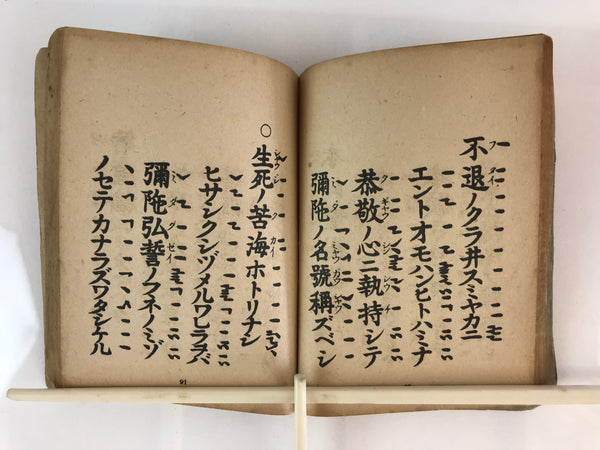 不退ノクラ井スミヤカニ
エントオモハンヒトハミナ
恭敬ノ心ニ執持シテ
彌陁ノ名號稱ズベシ
○生死ノ苦海ホトリナシ
ヒサシクシヅメルワレラヲバ
彌陁弘誓ノフネノミゾ
ノセテカナラズワタシケル
91